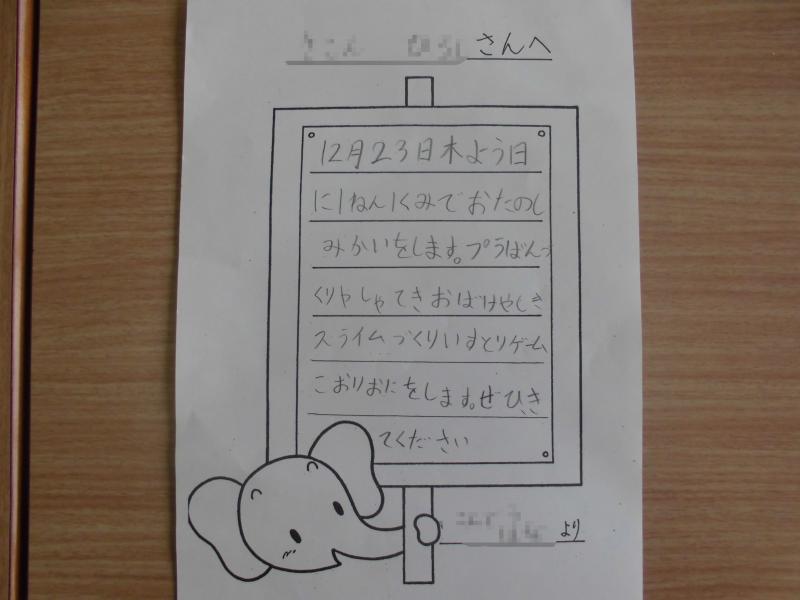 さんへ
12月23日木よう日
に1ねん1くみでおたのし
みかいをします。プラばんづ
くりやしゃてきおばけやしき
スライムづくりいすとりゲーム
こおりおにをします。ぜひき
てください
より